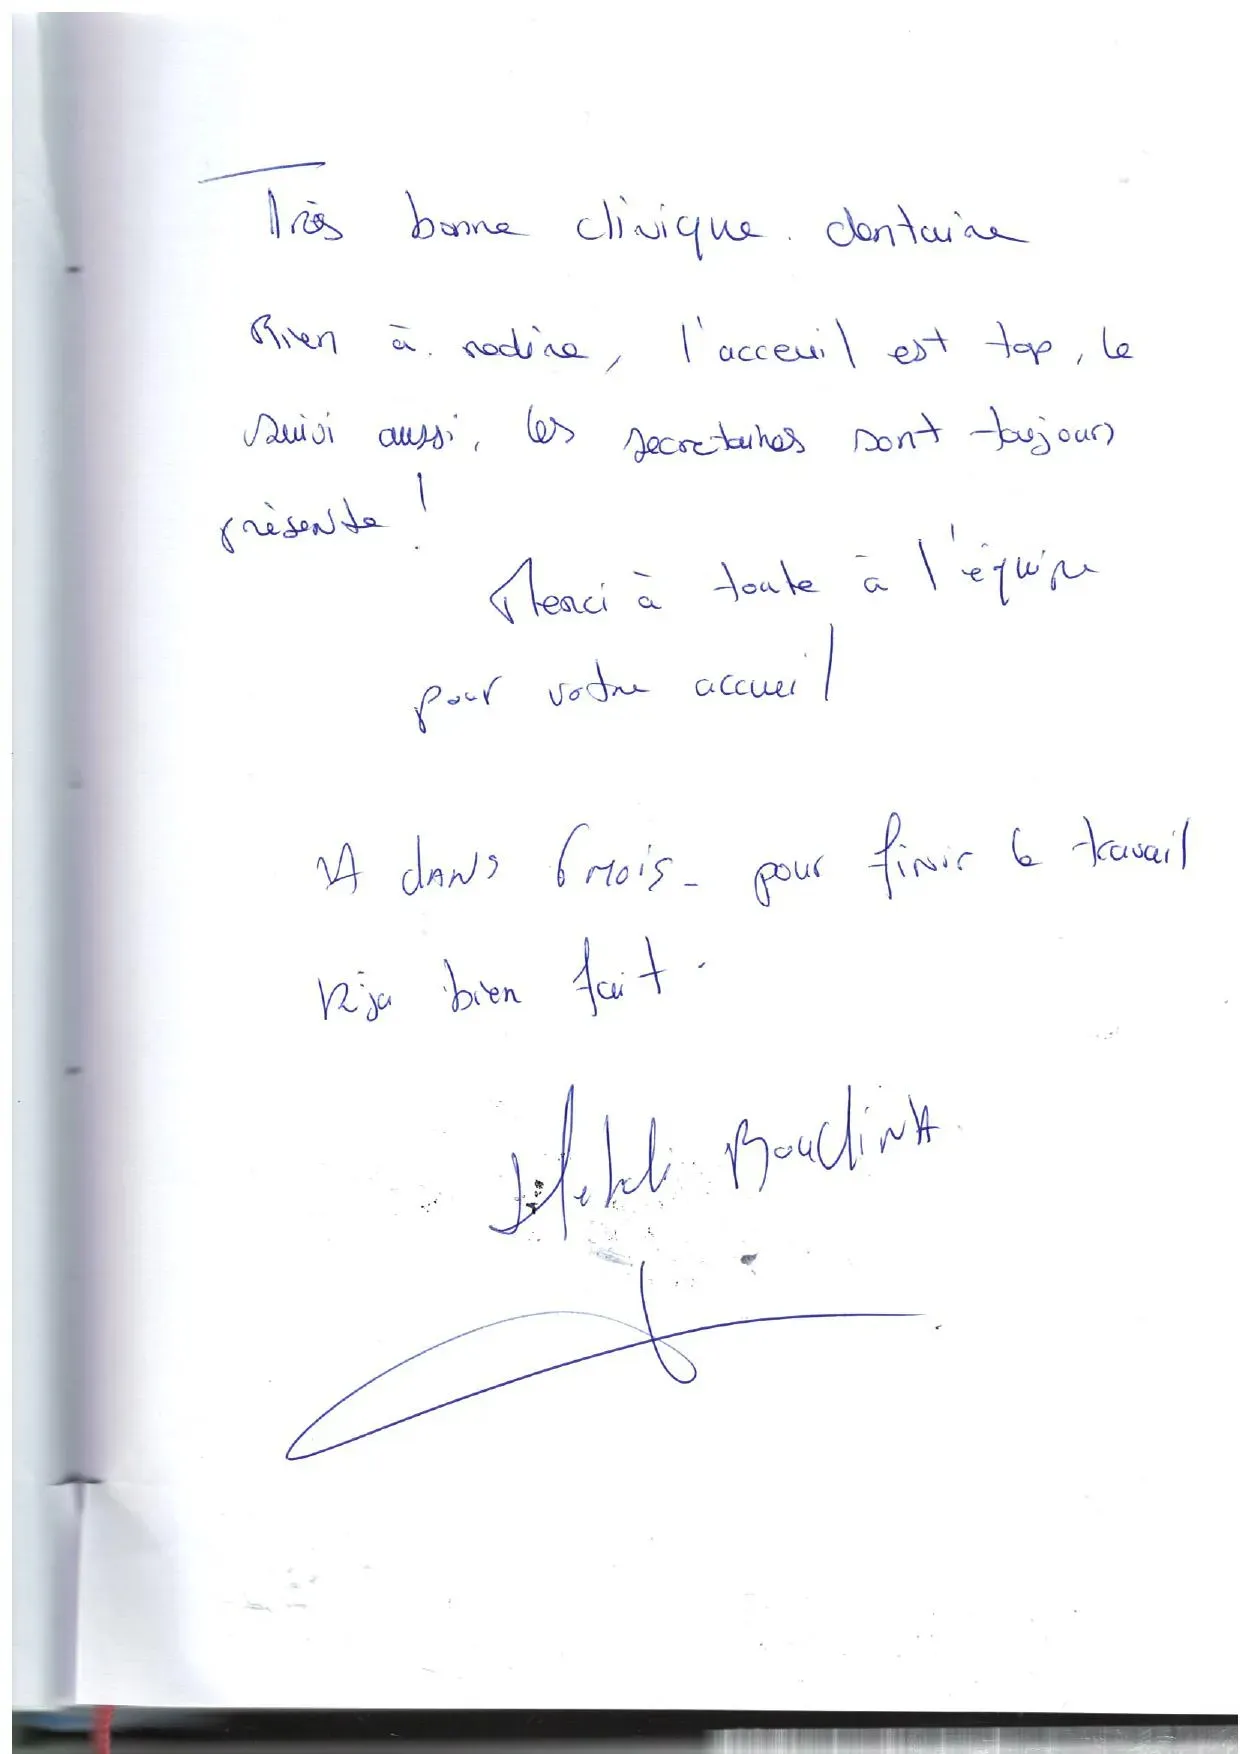 Très bonne clinique dentaire
Rien à redire, l'acceuil est top, le
suivi aussi, les secretaires sont toujours
présente !
Merci à toute à l'équipe
pour votre accueil
A dans 6 mois - pour finir le travail
déja bien fait.